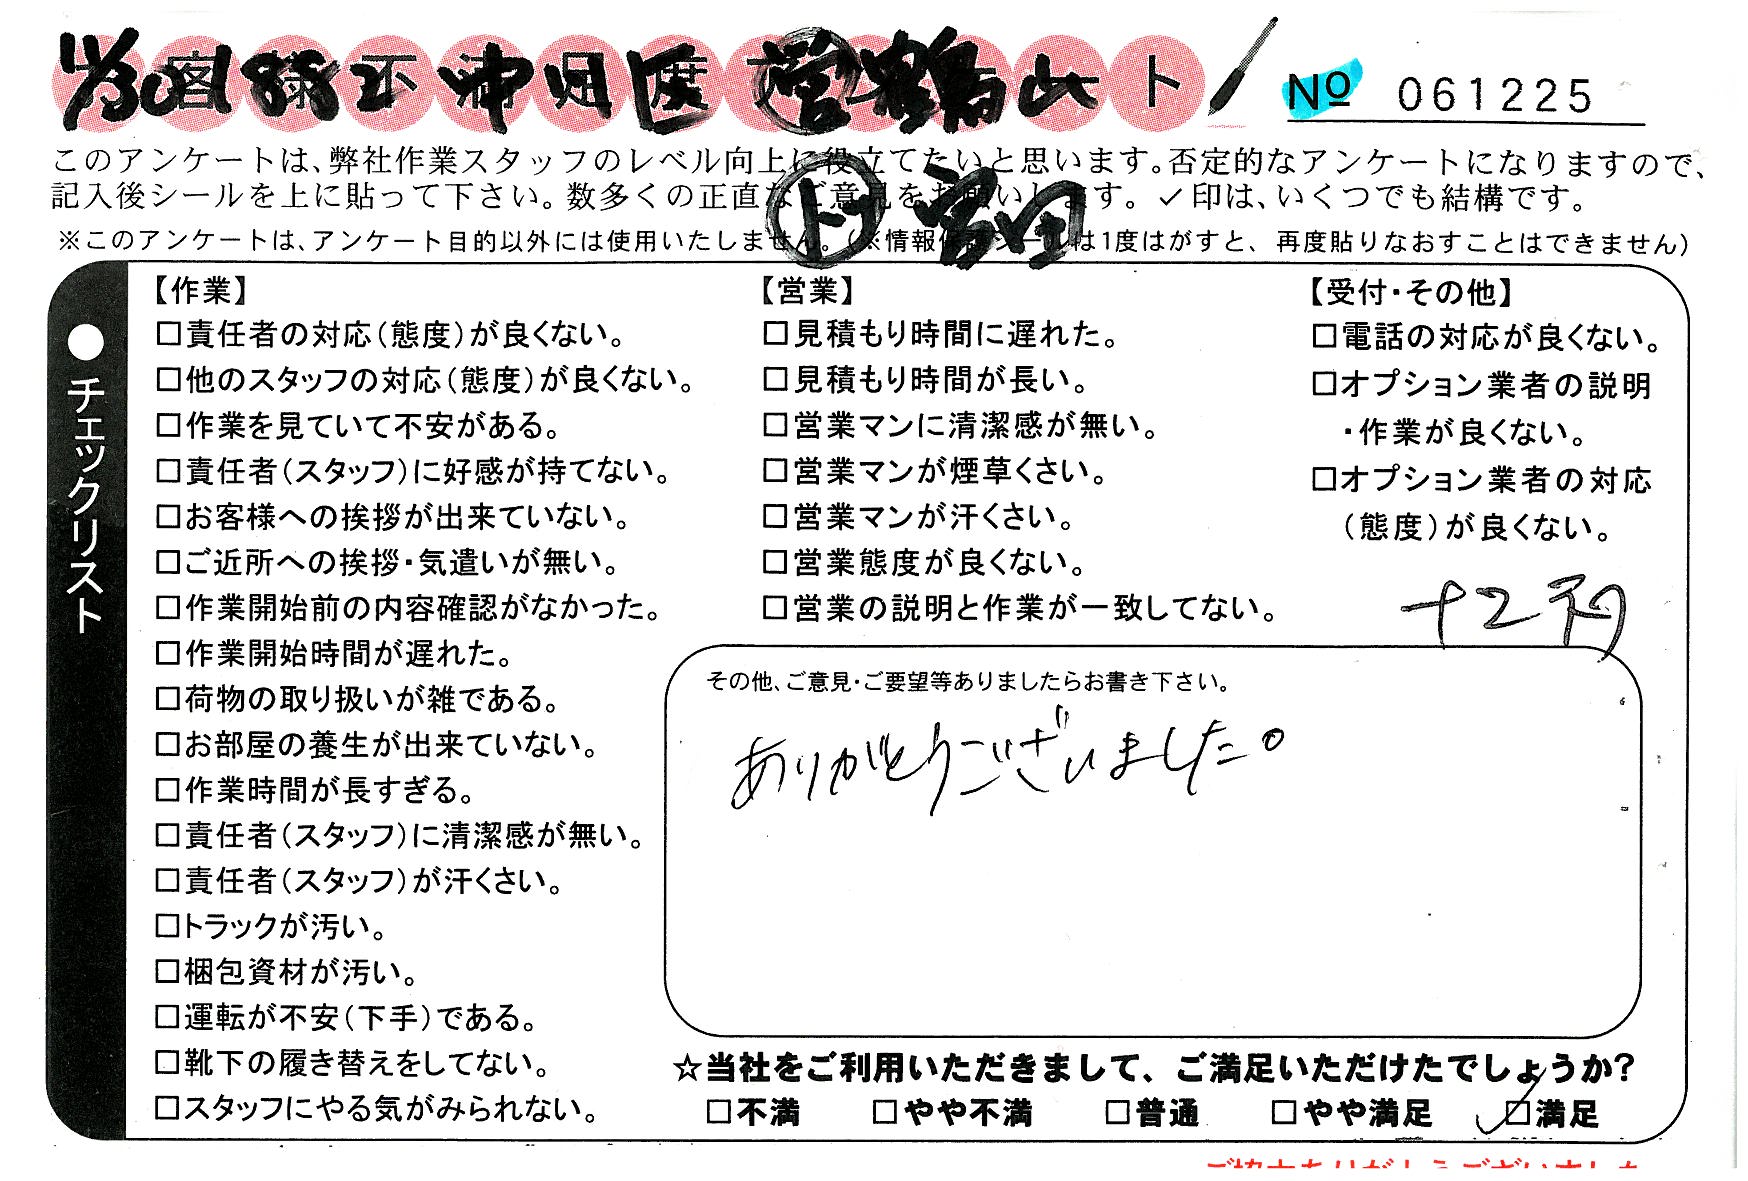 11/30 1882 中川区 営 鶴山
お客様不満足度アンケート
№ 061225
このアンケートは、弊社作業スタッフのレベル向上に役立てたいと思います。否定的なアンケートになりますので、
記入後シールを上に貼って下さい。数多くの正直なご意見をお願いします。✓印は、いくつでも結構です。
※このアンケートは、アンケート目的以外には使用いたしません。(※情報保護シールは1度はがすと、再度貼りなおすことはできません)
●チェックリスト
【作業】
□責任者の対応(態度)が良くない。
□他のスタッフの対応(態度)が良くない。
□作業を見ていて不安がある。
□責任者(スタッフ)に好感が持てない。
□お客様への挨拶が出来ていない。
□ご近所への挨拶・気遣いが無い。
□作業開始前の内容確認がなかった。
□作業開始時間が遅れた。
□荷物の取り扱いが雑である。
□お部屋の養生が出来ていない。
□作業時間が長すぎる。
□責任者(スタッフ)に清潔感が無い。
□責任者(スタッフ)が汗くさい。
□トラックが汚い。
□梱包資材が汚い。
□運転が不安(下手)である。
□靴下の履き替えをしてない。
□スタッフにやる気がみられない。
【営業】
□見積もり時間に遅れた。
□見積もり時間が長い。
□営業マンに清潔感が無い。
□営業マンが煙草くさい。
□営業マンが汗くさい。
□営業態度が良くない。
□営業の説明と作業が一致してない。
【受付・その他】
□電話の対応が良くない。
□オプション業者の説明
・作業が良くない。
□オプション業者の対応
(態度)が良くない。
その他、ご意見・ご要望等ありましたらお書き下さい。
ありがとうございました。
☆当社をご利用いただきまして、ご満足いただけたでしょうか?
□不満 □やや不満 □普通 □やや満足 ☑満足
ご協力ありがとうございました